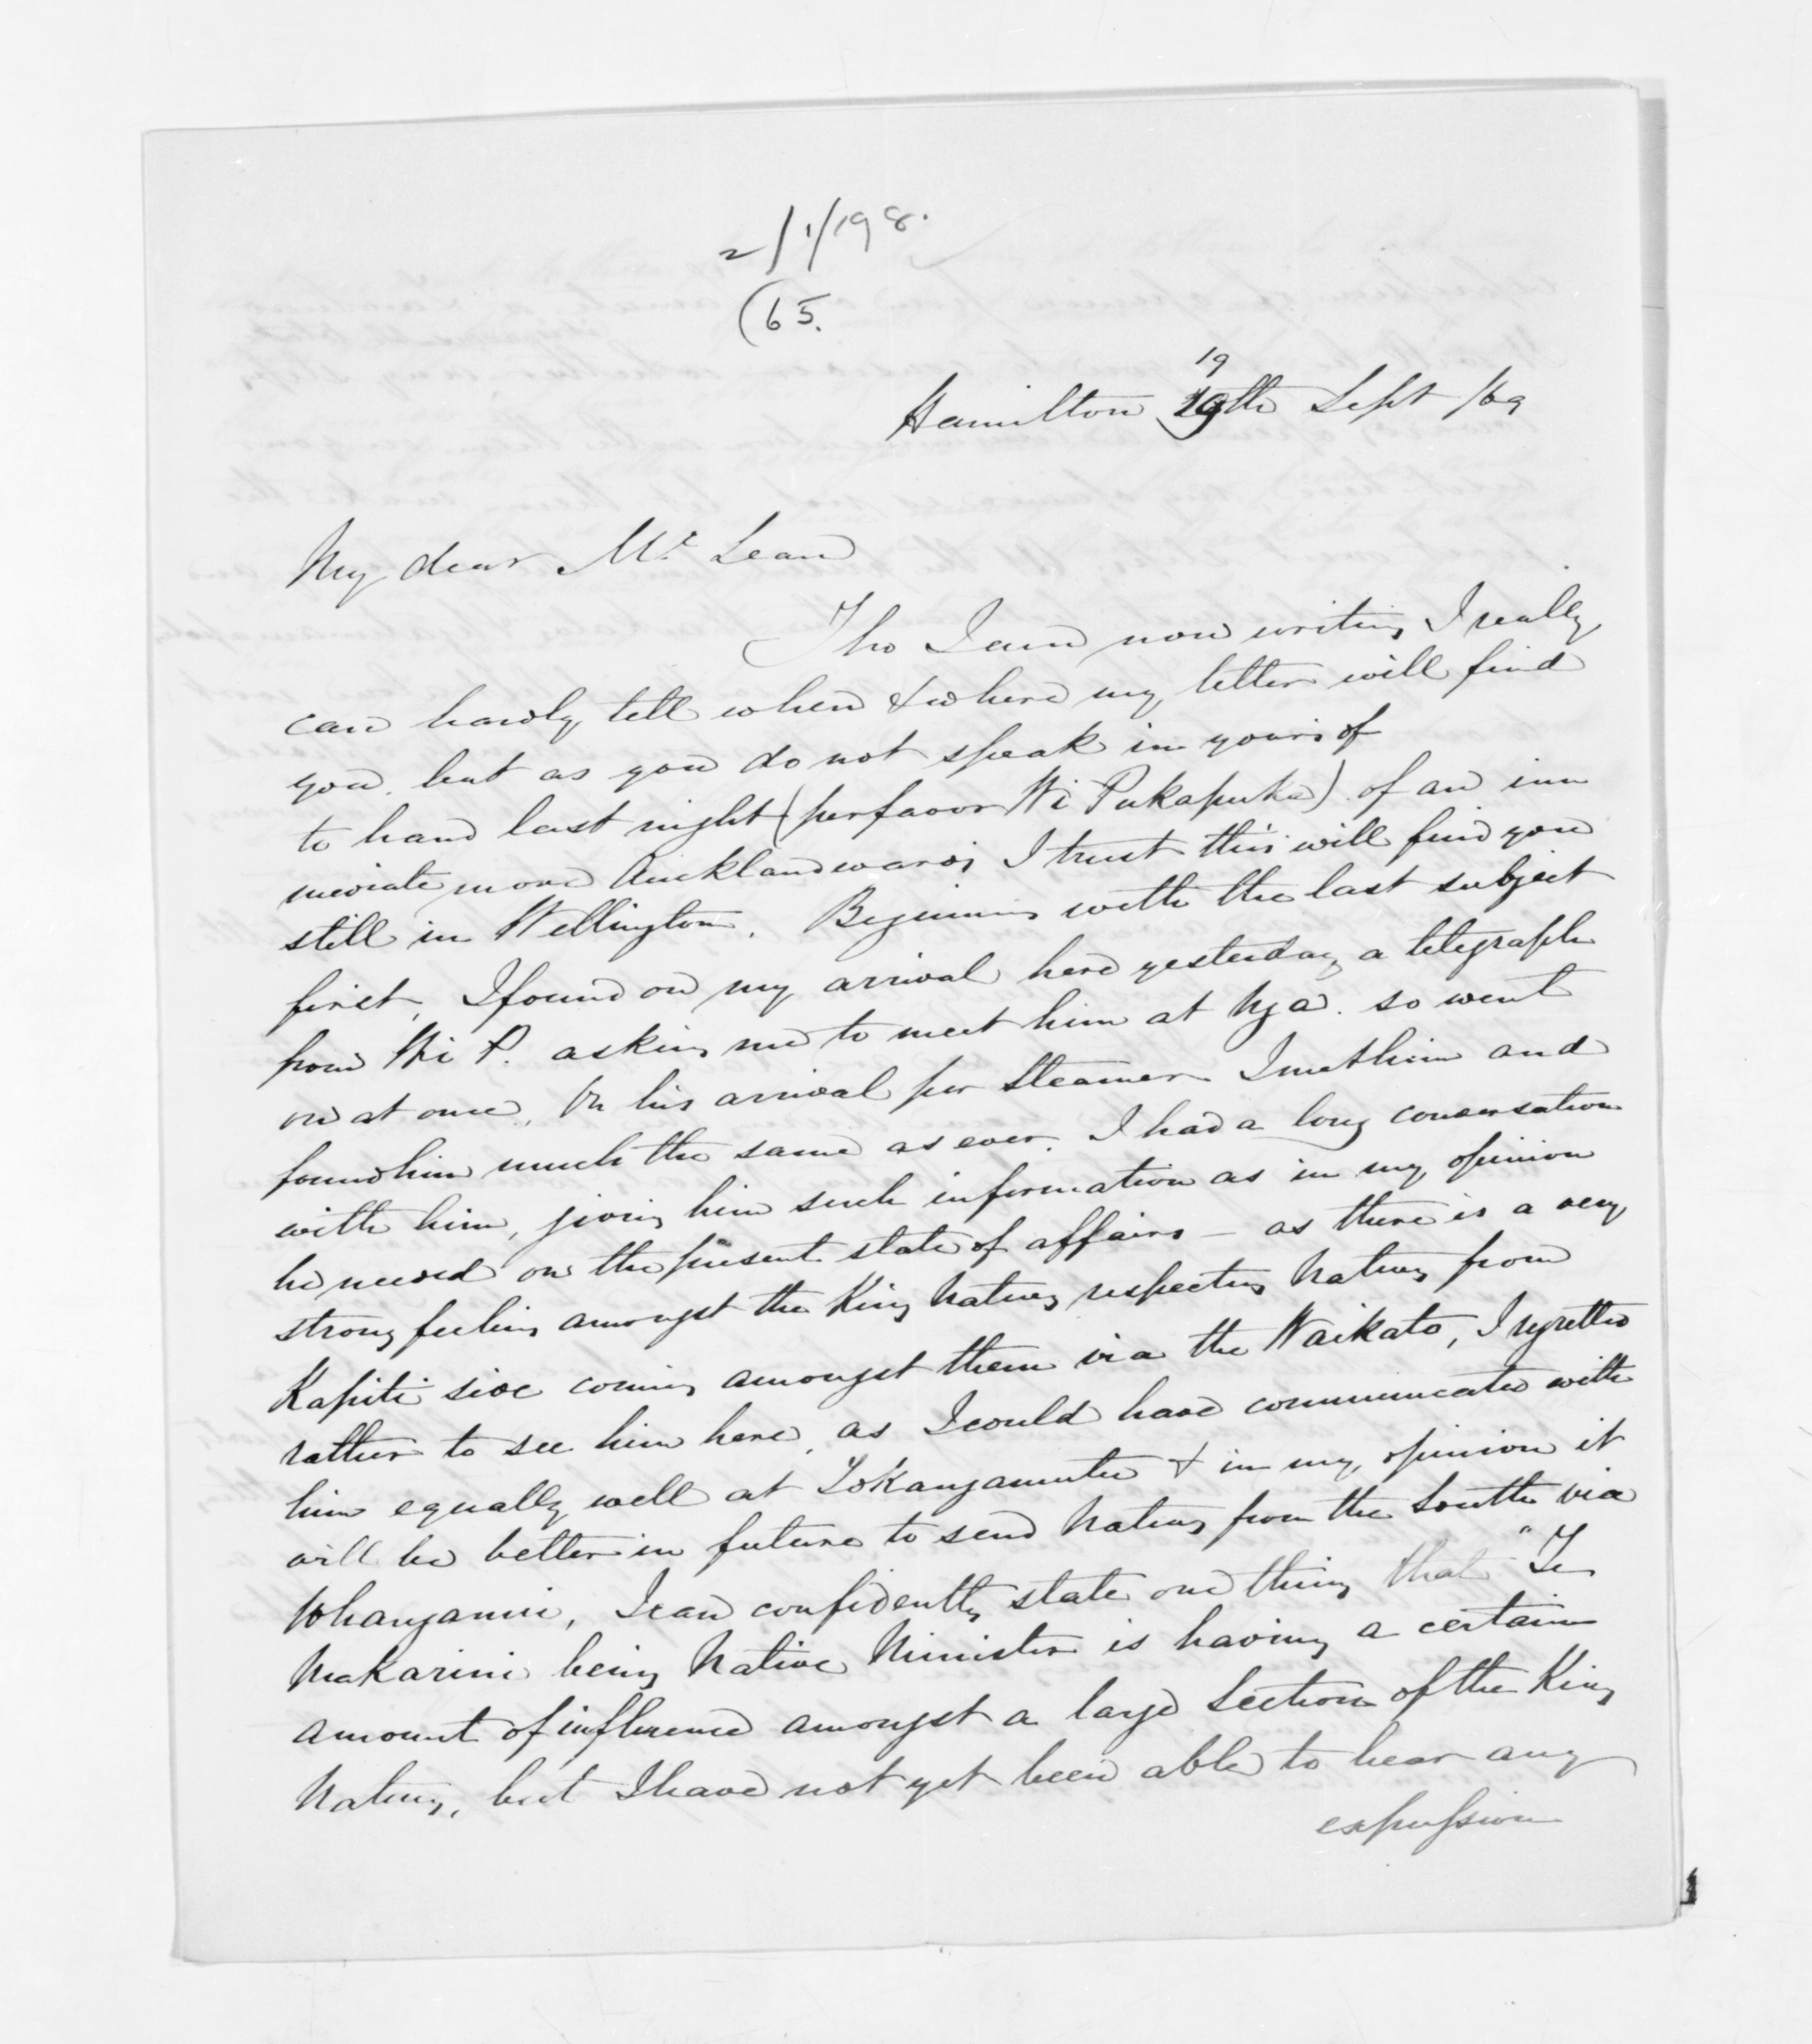 2/1/198.
(65.
19
Hamilton 19th Sept /69
My dear Mr Lean
Tho I am now writing I really
can hardly tell when & where my letter will find
you. but as you do not speak in yours of
to hand last night (per favor Wi Pukapuka) of an imm
mediate move Aucklandwards I trust this will find you
still in Wellington. Beginning with the last subject
first, I found on my arrival here yesterday a telegraph
from Wi P. asking me to meet him at Nga. so went
on at once, On his arrival per Steamer I met him and
found him much the same as ever. I had a long conversation
with him, giving him such information as in my opinion
he needed on the present state of affairs - as there is a very
strong feeling amongst the King Natives respecting Natives from
Kapiti side coming amongst them via the Waikato, I regretted
rather to see him here, as I could have communicated with
him equally well at Tokangamutu & in my opinion it
will be better in future to send Natives from the South via
Whanganui, I can confidently state one thing that "Te
Makarini being Native Minister is having a certain
amount of influence amongst a large Section of the King
Natives, but I have not yet been able to hear any
expression